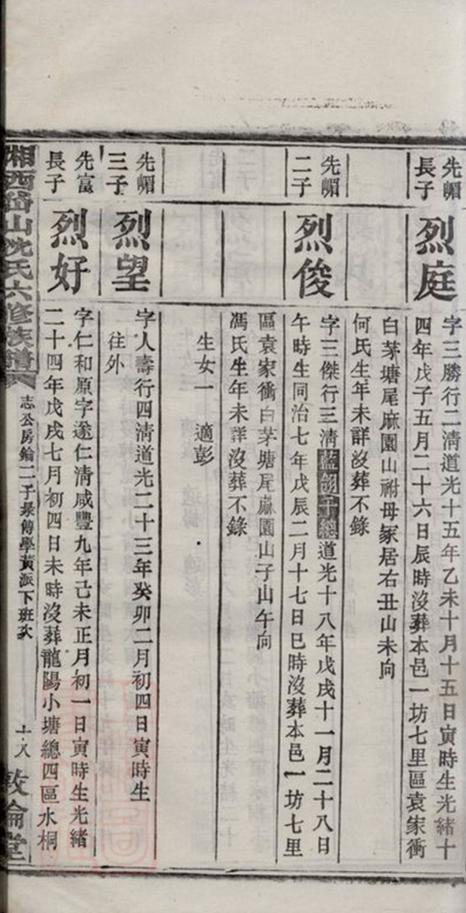 先帽
長子
烈庭
字三勝行二清道光十五年乙未十月十五日寅時生光緒十
四年戊子五月二十六日辰時沒葬本邑一坊七里區袁家衝
白茅塘尾麻園山祔母冢居右丑山未向
何氏生年未詳沒葬不錄
先帽
二子
烈俊
字三傑行三清藍翎千總道光十八年戊戌十一月二十八日
午時生同治七年戊辰二月十七日巳時沒葬本邑一坊七里
區袁家衝白茅塘尾麻園山子山午向
馮氏生年未詳沒葬不錄
生女一 適彭
先帽
三子
烈望
字人壽行四清道光二十三年癸卯二月初四日寅時生
往外
先富
長子
烈好
字仁和原字遂仁清咸豐九年己未正月初一日寅時生光緒
二十四年戊戌七月初四日未時沒葬龍陽小塘總四區水桐
湘西峆山沈氏六修族譜
志公房鑰二子景傅學黃派下班次
十八
敦倫堂